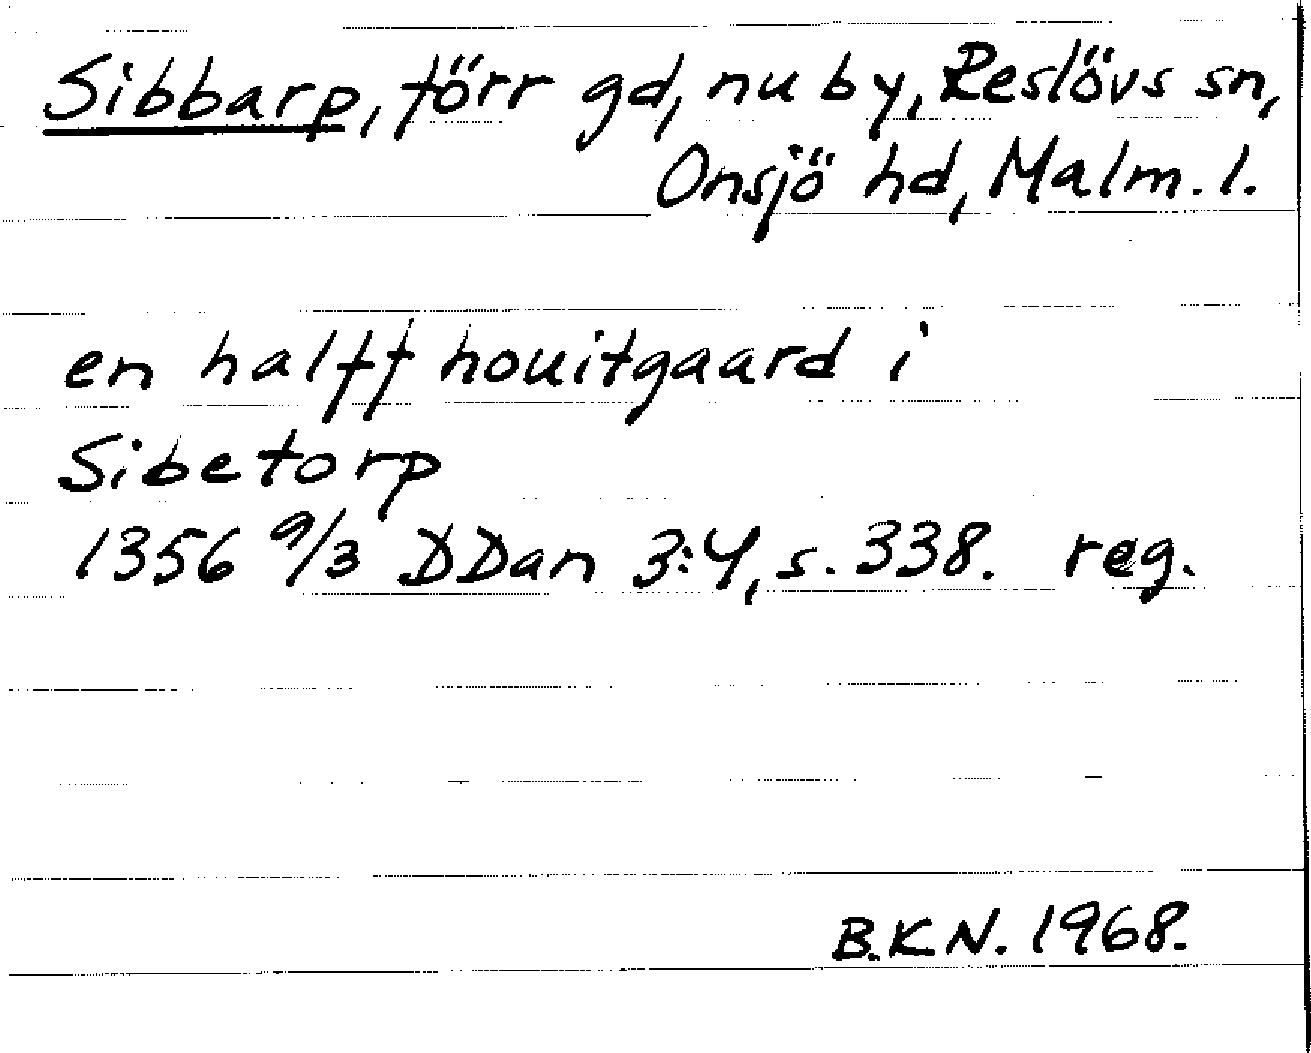 Sibbarp, förr gd, nu by, Reslövs sn,
Onsjö hd, Malm. l.
en halff houitgaard i
Sibetorp
1356 9/3 DDan 3:4, s. 338. reg.
B.K.N. 1968.